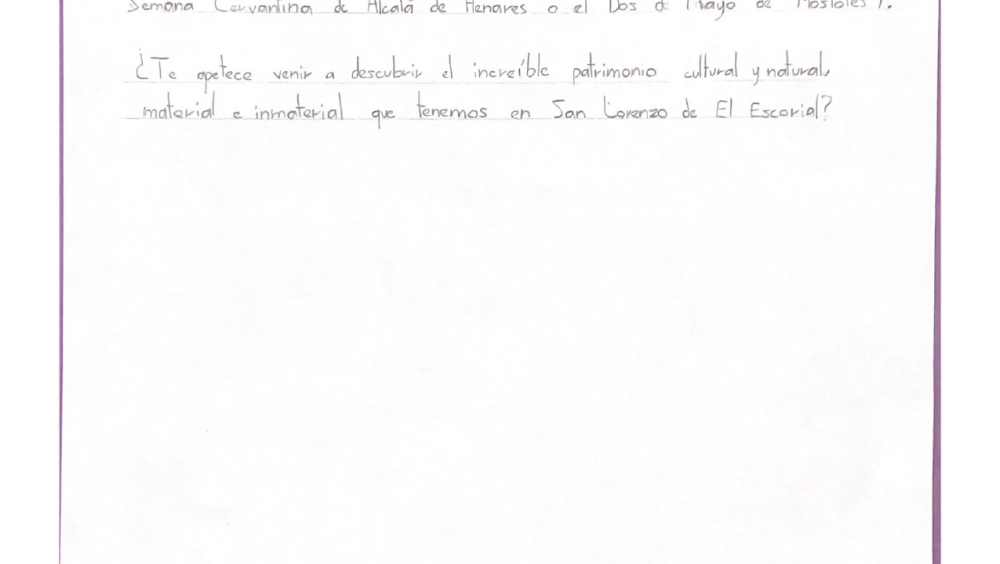 Semana Cervantina de Alcalá de Henares o el Dos de Mayo de Móstoles).
¿Te apetece venir a descubrir el increíble patrimonio cultural y natural,
material e inmaterial que tenemos en San Lorenzo de El Escorial?